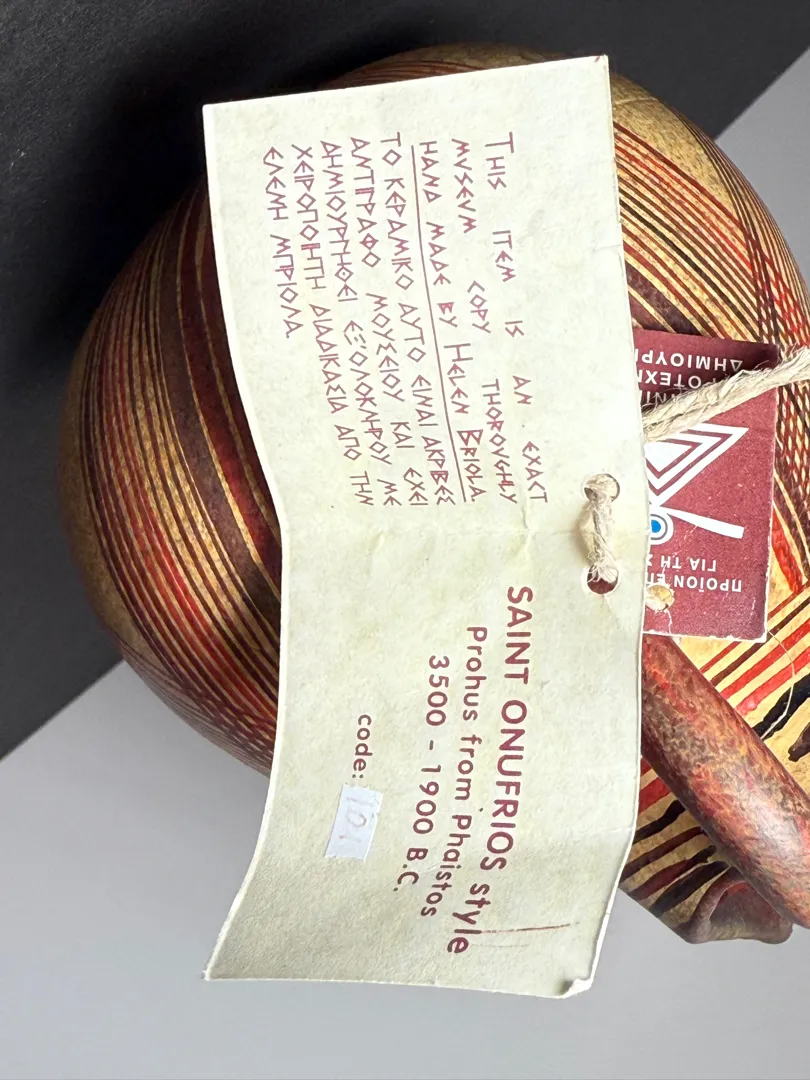 THIS ITEM IS AN EXACT
MVSEVM COPY THOROVGHLY
HAND MADE BY HELEN BRIOLA
ΤΟ ΚΕΡΑΜΙΚΟ ΑΥΤΟ ΕΙΝΑΙ ΑΚΡΙΒΕΣ
ΑΝΤΙΓΡΑΦΟ ΜΟΥΣΕΙΟΥ ΚΑΙ ΕΧΕΙ
ΔΗΜΙΟΥΡΓΗΘΕΙ ΕΞ'ΟΛΟΚΛΗΡΟΥ ΜΕ
ΧΕΙΡΟΠΟΙΗΤΗ ΔΙΑΔΙΚΑΣΙΑ ΑΠΟ ΤΗΝ
ΕΛΕΝΗ ΜΠΡΙΟΛΑ
SAINT ONUFRIOS style
Prohus from Phaistos
3500 - 1900 B.C.
code: 101
ΠΡΟΪΟΝ ΕΠ
ΓΙΑ ΤΗ